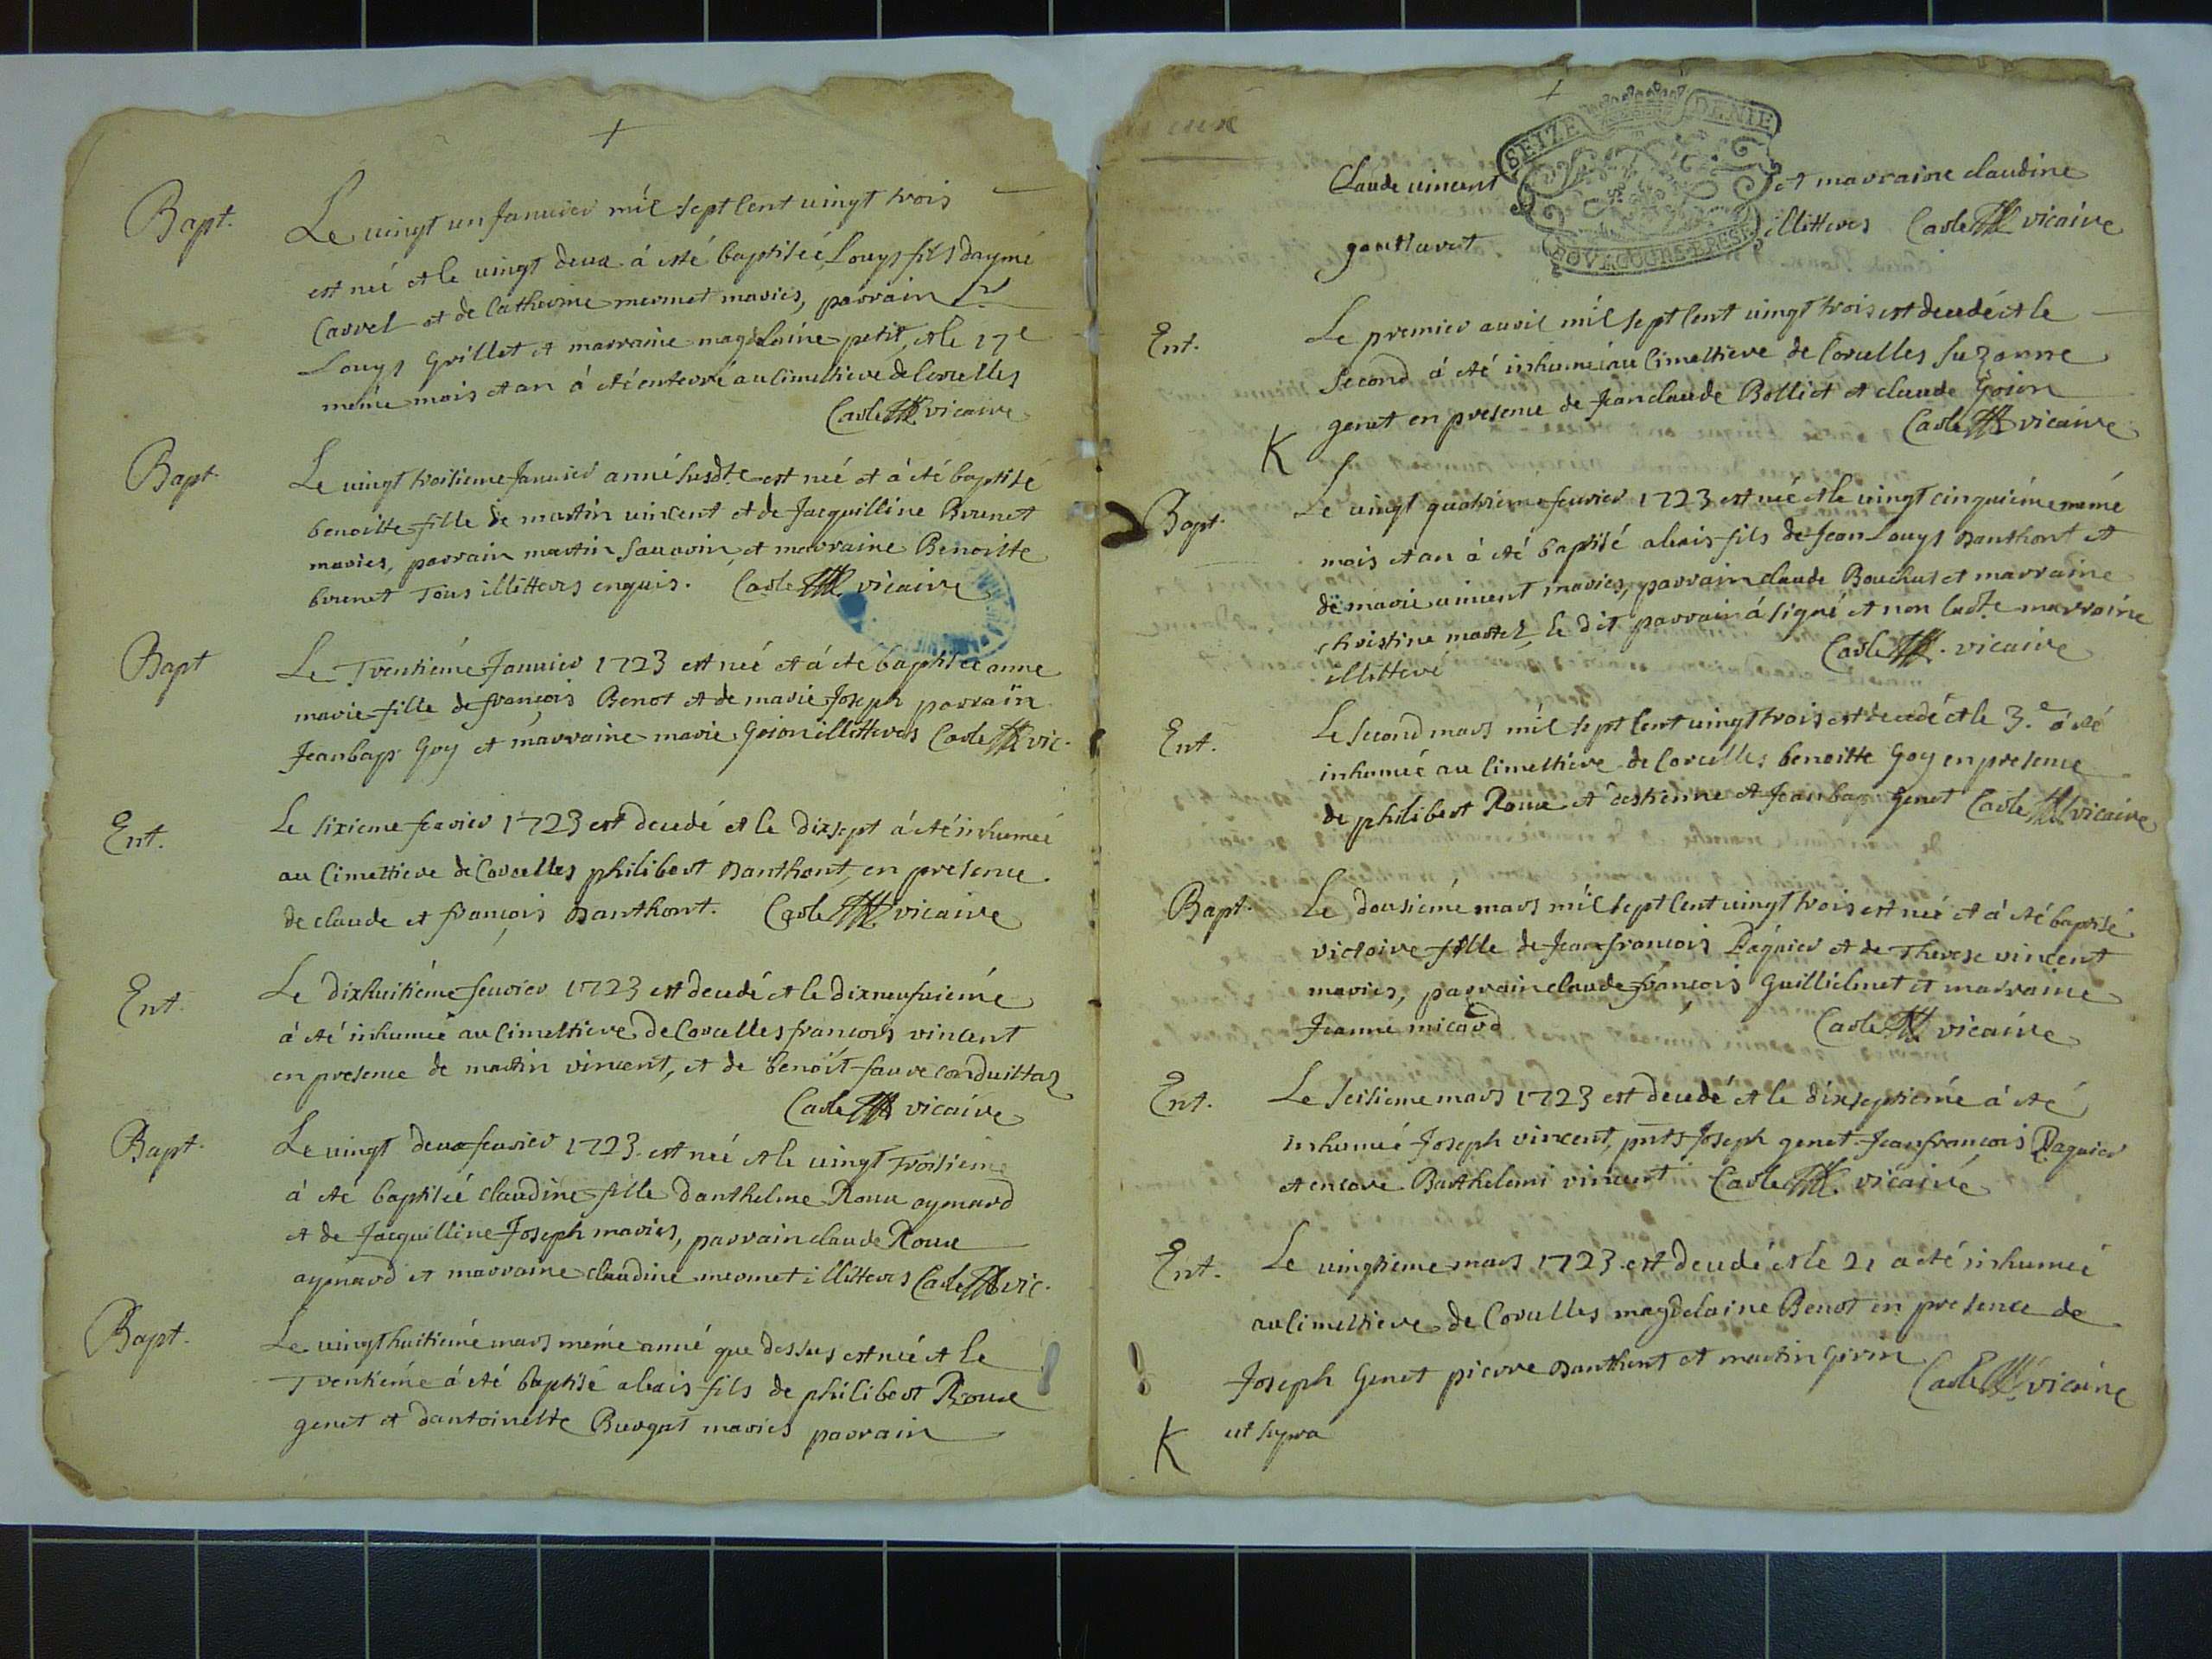 Bapt. Le vingt un Januier mil sept cent uingt trois
est né et le uingt deux á esté baptiseé Louys fils daymé
Carrel et de Catherine mermet mariés, parrain
Louys Grillet et marraine magdelaine petit, et le 27e
méme mois et an á été enterré au cimettiere de Corcelles
Carle vicaire
Bapt. Le uingt troisieme Januier anné susdte est neé et à été baptisé
benoitte fille de martin uincent et de Jacquilline Brunet
mariés, parrain martin Sauarin, et marraine Benoitte
brunet Tous illitterés enquis. Carle vicaire
Bapt Le Trentiéme Januier 1723 est neé et á éte baptiseé anne
marie fille de françois Benot et de marie Joseph parrain
Jeanbap. Goy et marraine marie Goion illitteres Carle vic.
Ent. Le sixieme feurier 1723 est decedé et le dixsept á été inhumeé
au Cimettiere de Corcelles philibert Danthont, en presence
de claude et françois Danthont. Carle vicaire
Ent. Le dixhuitiéme feurier 1723 est decedé et le dixneufuiéme
á été inhumeé au Cimettiere de Corcelles francois vincent
en presence de martin vincent, et de benoit faure conduittaz
Carle vicaire
Bapt. Le uingt deux feurier 1723. est neé et le uingt Troisieme
á éte baptiseé claudine fille danthelme Roux aymard
et de Jacquilline Joseph mariés, parrain claude Roux
aymard et marraine claudine mermet illitteres Carle vic.
Bapt. Le uingthuitiémé mars méme anné que dessus est neé et le
Trentiémé á été baptisé alexis fils de philibert Roux
genet et dantoinette Burgat mariés parrain
Claude uincent et marraine claudine
gonthuret illitteres Carle vicaire
SEIZE DENIE
BOVRGOGNE-BRESE
Ent. Le premier auril mil sept cent uingt trois est decedé et le
Second á été inhumé au Cimettiere de Corcelles Suzanne
genet en presence de Jean claude Bolliet et claude Goion
Carle vicaire
K
Bapt. Le uingt quatriéme feurier 1723 est né et le uingt cinquiéme méme
mois et an à été baptisé alexis fils de Jean Louys Danthont et
de marie uincent mariés, parrain claude Bouchut et marraine
christine martel, le dit parrain á signé et non ladte marraine
illitteré Carle vicaire
Ent. Le second mars mil sept cent uingt trois est decedé et le 3.e á été
inhumeé au Cimettiere de Corcelles benoitte Goy en presence
de philibert Roux et destienne et Jeanbap Genet Carle vicaire
Bapt. Le dousiéme mars mil sept cent uingt trois est neé et á été baptisé
victoire fille de Jean francois Paquier et de Therese vincent
mariés, parrain claude françois Guillielmet et marraine
Jeanne micard Carle vicaire
Ent. Le seisieme mars 1723 est decedé et le dixseptiéme á été
inhumeé Joseph vincent, pnts Joseph genet Jean françois Paquier
et encore Barthelemi vincent Carle vicaire
Ent. Le uingtieme mars 1723. est decedé et le 21 a été inhumeé
au Cimettiere de Corcelles magdelaine Benot en presence de
Joseph Genet pierre Danthont et martin Girin
Carle vicaire
K ut supra